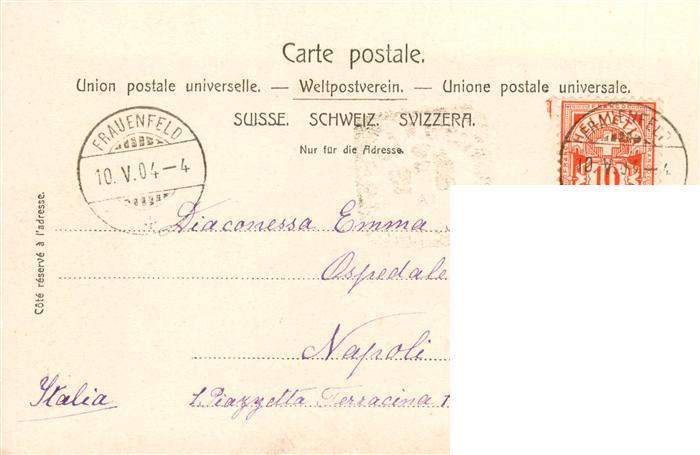 Carte postale.
Union postale universelle. — Weltpostverein. — Unione postale universale.
SUISSE. SCHWEIZ. SVIZZERA.
Nur für die Adresse.
FRAUENFELD
10. V. 04 – 4
10. V. 04 – 4
10
Côté réservé à l'adresse.
Diaconessa Emma
Ospedale
Napoli
Italia
1. Piazzetta Terracina 1